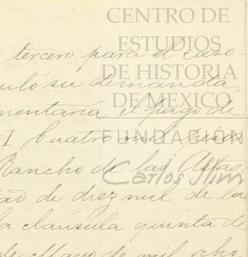 CENTRO DE
ESTUDIOS
DE HISTORIA
DE MEXICO
FUNDACIÓN
Carlos Slim
tercero para el caso
su demanda,
mentaria el pago de
I Cuatro mil
Rancho de las
de diez mil de la
la cláusula quinta de
de Mayo de mil ocho